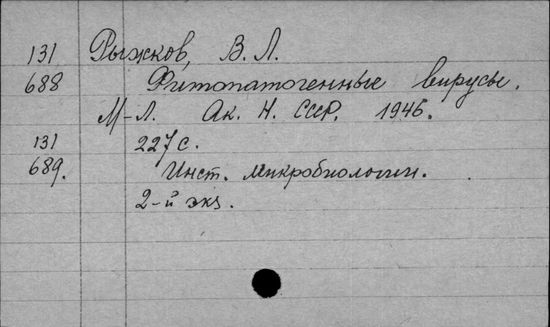 131 Рыжков, В. Л.
688 Фитопатогенные вирусы.
М-Л. Ак. Н. СССР. 1946.
131 227 с.
689. Инст. микробиологии.
2-й экз.